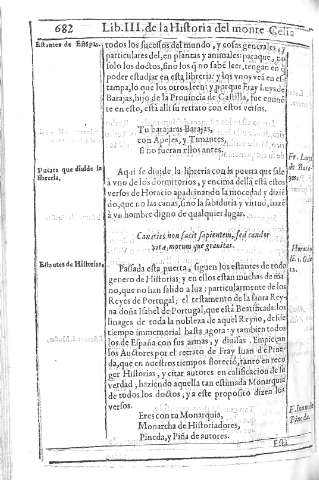 682 Lib. III. de la Historia del monte Celia
Estantes de Estãpas.
todos los sucesos del mundo, y cosas generales, y
particulares del, en plantas y animales: paraque, no
solo los doctos, sino los q̃ no sabẽ leer, tengan en q̃
poder estudiar en esta libreria: y los vnos veã en es-
tampa, lo que los otros leen: y porque Fray Luys de
Barajas, hijo de la Provincia de Castilla, fue eminẽ-
te en esto, está alli su retrato con estos versos.
Tu barajaras Barajas,
con Apeles, y Timantes,
si no fueran ellos antes.
Fr. Luys
de Bara-
jas.
Puerta que divide la
libreria.
Aqui se divide la libreria con la puerta que sale
à vno de los dormitorios, y encima della està estos
versos de Horacio apadrinando la mocedad y dizié-
do, que no las canas, sino la sabiduria y virtud, hazẽ
à vn hombre digno de qualquier lugar.
Canities non facit sapientem, sed candor
vitæ, morum que gravitas.
Horacio
Estantes de Historias.
Passada esta puerta, siguen los estantes de todo
genero de Historias; y en ellos estan muchas de ma-
no, que no han salido a luz: particularmente de los
Reyes de Portugal; el testamento de la santa Rey-
na doña Isabel de Portugal, que està Beatificada: los
linages de toda la nobleza de aquel Reyno, desde
tiempo immemorial hasta agora: y tambien todos
los de España con sus armas, y divisas. Empieçan
los Auctores por el retrato de Fray Iuan de Pine-
da, que en nuestros tiempos floreciò, tanto en reco
ger Historias, y citar autores en calificacion de su
verdad, haziendo aquella tan estimada Monarquia
de todos los doctos, y a este proposito dizen los
versos.
Eres con tu Monarquia,
Monarcha de Historiadores,
Pineda, y Piña de autores.
F. Iuan de
Pineda.
Està